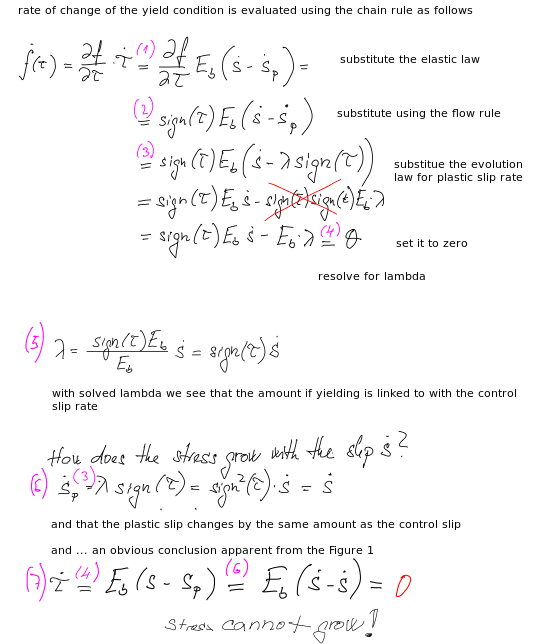 rate of change of the yield condition is evaluated using the chain rule as follows
ḟ(τ) = ∂f/∂τ · τ̇ (1)= ∂f/∂τ E_b (ṡ - ṡ_p) = substitute the elastic law
(2)= sign(τ) E_b (ṡ - ṡ_p) substitute using the flow rule
(3)= sign(τ) E_b (ṡ - λ sign(τ)) substitue the evolution
law for plastic slip rate
= sign(τ) E_b ṡ - sign(τ) sign(τ) E_b · λ
= sign(τ) E_b ṡ - E_b · λ (4)= 0 set it to zero
resolve for lambda
(5) λ = sign(τ) E_b / E_b ṡ = sign(τ) ṡ
with solved lambda we see that the amount if yielding is linked to with the control
slip rate
How does the stress grow with the slip ṡ?
(6) ṡ_p (3)= λ sign(τ) = sign²(τ) · ṡ = ṡ
and that the plastic slip changes by the same amount as the control slip
and ... an obvious conclusion apparent from the Figure 1
(7) τ̇ (4)= E_b (s - s_p) (6)= E_b (ṡ - ṡ) = 0
stress cannot grow!